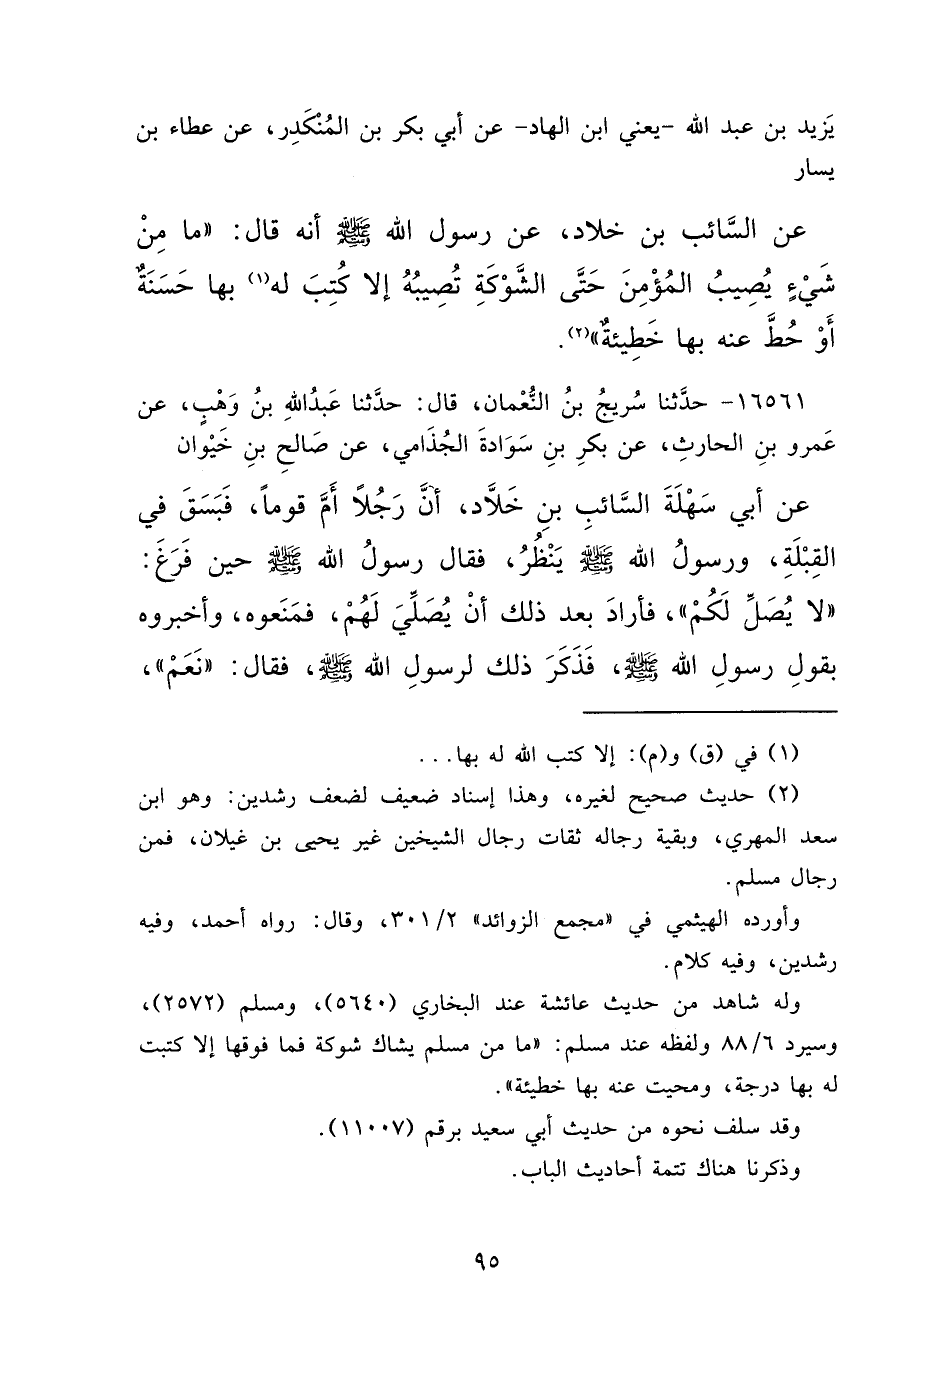 يَزيد بن عبد الله -يعني ابن الهاد- عن أبي بكر بن المُنْكَدِر، عن عطاء بن
يسار
عن السَّائب بن خلاد، عن رسول الله ﷺ أنه قال: «ما مِنْ
شَيْءٍ يُصِيبُ المُؤْمِنَ حَتَّى الشَّوْكَةِ تُصِيبُهُ إلا كُتِبَ له(١) بها حَسَنَةٌ
أَوْ حُطَّ عنه بها خَطِيئةٌ»(٢).
١٦٥٦١- حدَّثنا سُريجُ بنُ النُّعْمان، قال: حدَّثنا عَبدُاللهِ بنُ وَهْبٍ، عن
عَمرو بنِ الحارثِ، عن بكرِ بنِ سَوَادةَ الجُذَامي، عن صَالحِ بنِ خَيْوان
عن أبي سَهْلَةَ السَّائبِ بنِ خَلَّاد، أنَّ رَجُلاً أمَّ قوماً، فَبَسَقَ في
القِبْلَةِ، ورسولُ الله ﷺ يَنْظُرُ، فقال رسولُ الله ﷺ حين فَرَغَ:
«لا يُصَلِّ لَكُمْ»، فأرادَ بعد ذلك أنْ يُصَلِّيَ لَهُمْ، فمَنَعوه، وأخبروه
بقولِ رسولِ الله ﷺ، فَذَكَرَ ذلك لرسولِ الله ﷺ، فقال: «نَعَمْ»،
(١) في (ق) و(م): إلا كتب الله له بها...
(٢) حديث صحيح لغيره، وهذا إسناد ضعيف لضعف رشدين: وهو ابن
سعد المهري، وبقية رجاله ثقات رجال الشيخين غير يحيى بن غيلان، فمن
رجال مسلم.
وأورده الهيثمي في «مجمع الزوائد» ٣٠١/٢، وقال: رواه أحمد، وفيه
رشدين، وفيه كلام.
وله شاهد من حديث عائشة عند البخاري (٥٦٤٠)، ومسلم (٢٥٧٢)،
وسيرد ٨٨/٦ ولفظه عند مسلم: «ما من مسلم يشاك شوكة فما فوقها إلا كتبت
له بها درجة، ومحيت عنه بها خطيئة».
وقد سلف نحوه من حديث أبي سعيد برقم (١١٠٠٧).
وذكرنا هناك تتمة أحاديث الباب.
٩٥